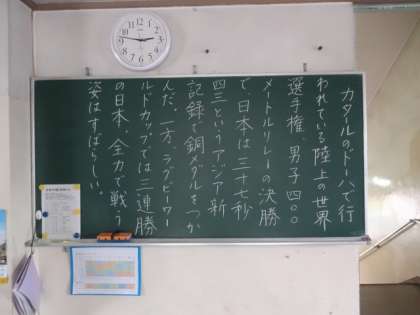 カタルのドーハで行
われている陸上の世界
選手権、男子四〇〇
メートルリレーの決勝
で、日本は三十七秒
四三というアジア新
記録で銅メダルをつか
んだ。一方、ラグビーワー
ルドカップでは三連勝
の日本。全力で戦う
姿はすばらしい。